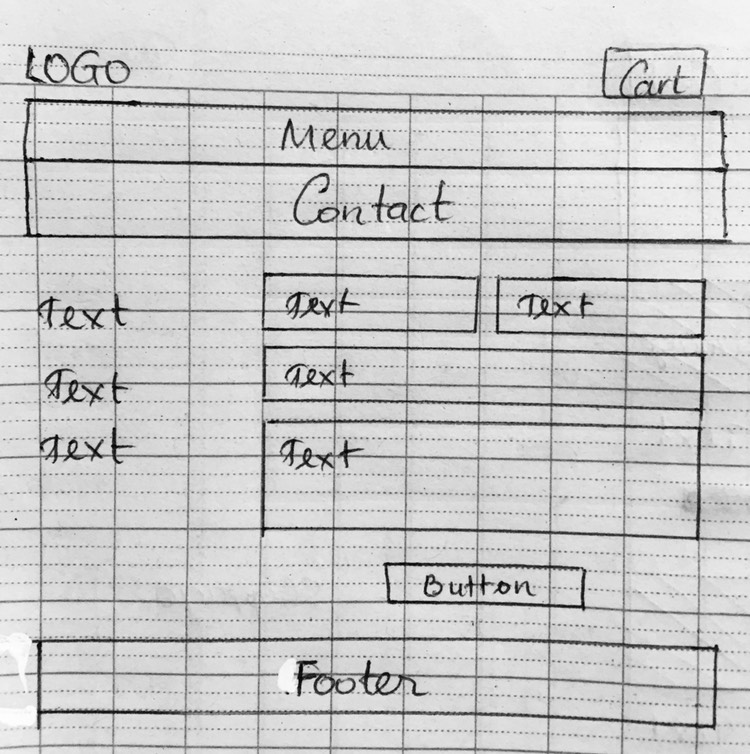 LOGO Cart
Menu
Contact
Text Text Text
Text Text
Text Text
Button
Footer